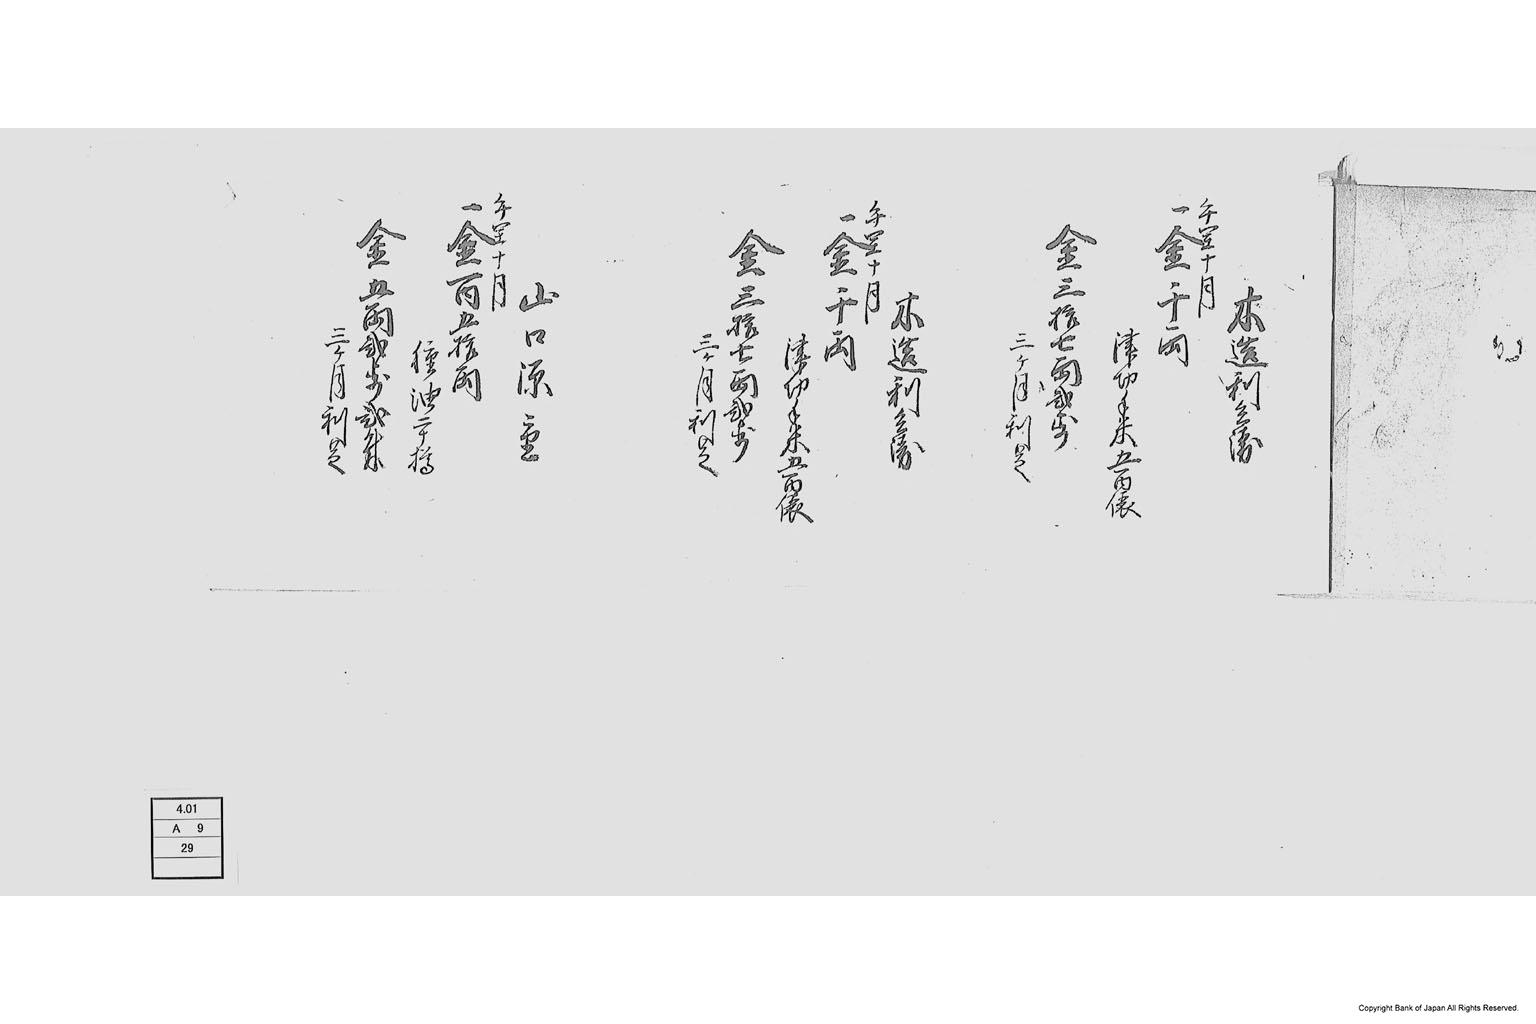 木造利兵衛
午四十月
一金千両
津切手米五百俵
金三拾七両弐歩
三ケ月利足
木造利兵衛
午四十月
一金千両
津切手米五百俵
金三拾七両弐歩
三ケ月利足
山口源
午四十月
一金百五拾両
種油二十樽
金五両弐歩弐朱
三ケ月利足
4.01
A 9
29
Copyright Bank of Japan All Rights Reserved.